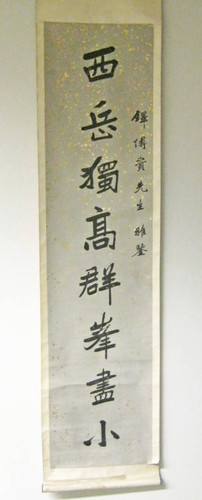 鐸傅貴先生雅鑒
西岳獨高群峯盡小